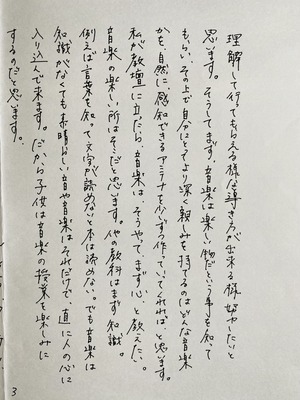 理解して行ってもらえる様な導き方が出来る様努力したいと
思います。そうしてまず、音楽は楽しい物だという事を知って
もらい、その上で自分にとってより深く親しみを持てるのはどんな音楽
かを自然に感知できるアンテナを少しずつ作っていってくれればと思います。
私が教壇に立ったら音楽は、そうやってまず心、と教えたい。
音楽の楽しい所はそこだと思います。他の教科はまず知識。
例えば言葉を知って文字が読めないと本は読めない。でも音楽は
知識がなくても素晴らしい音や音楽はそれだけで、直に人の心に
入り込んで来ます。だから子供は音楽の授業を楽しみに
するのだと思います。
3